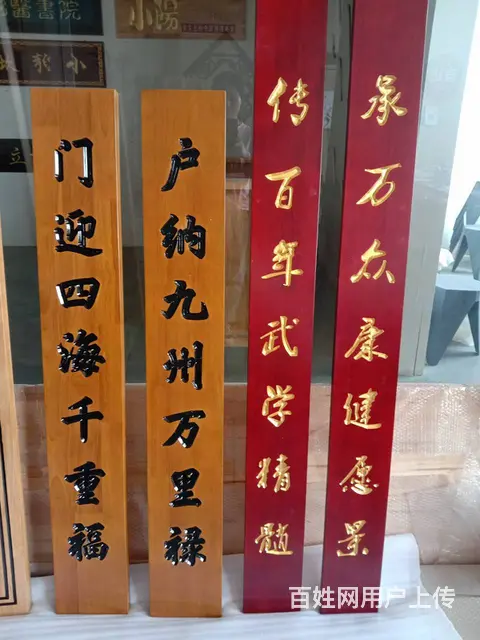 门迎四海千重福
户纳九州万里禄
传百年武学精髓
承万众康健愿景
小陽
百姓网用户上传